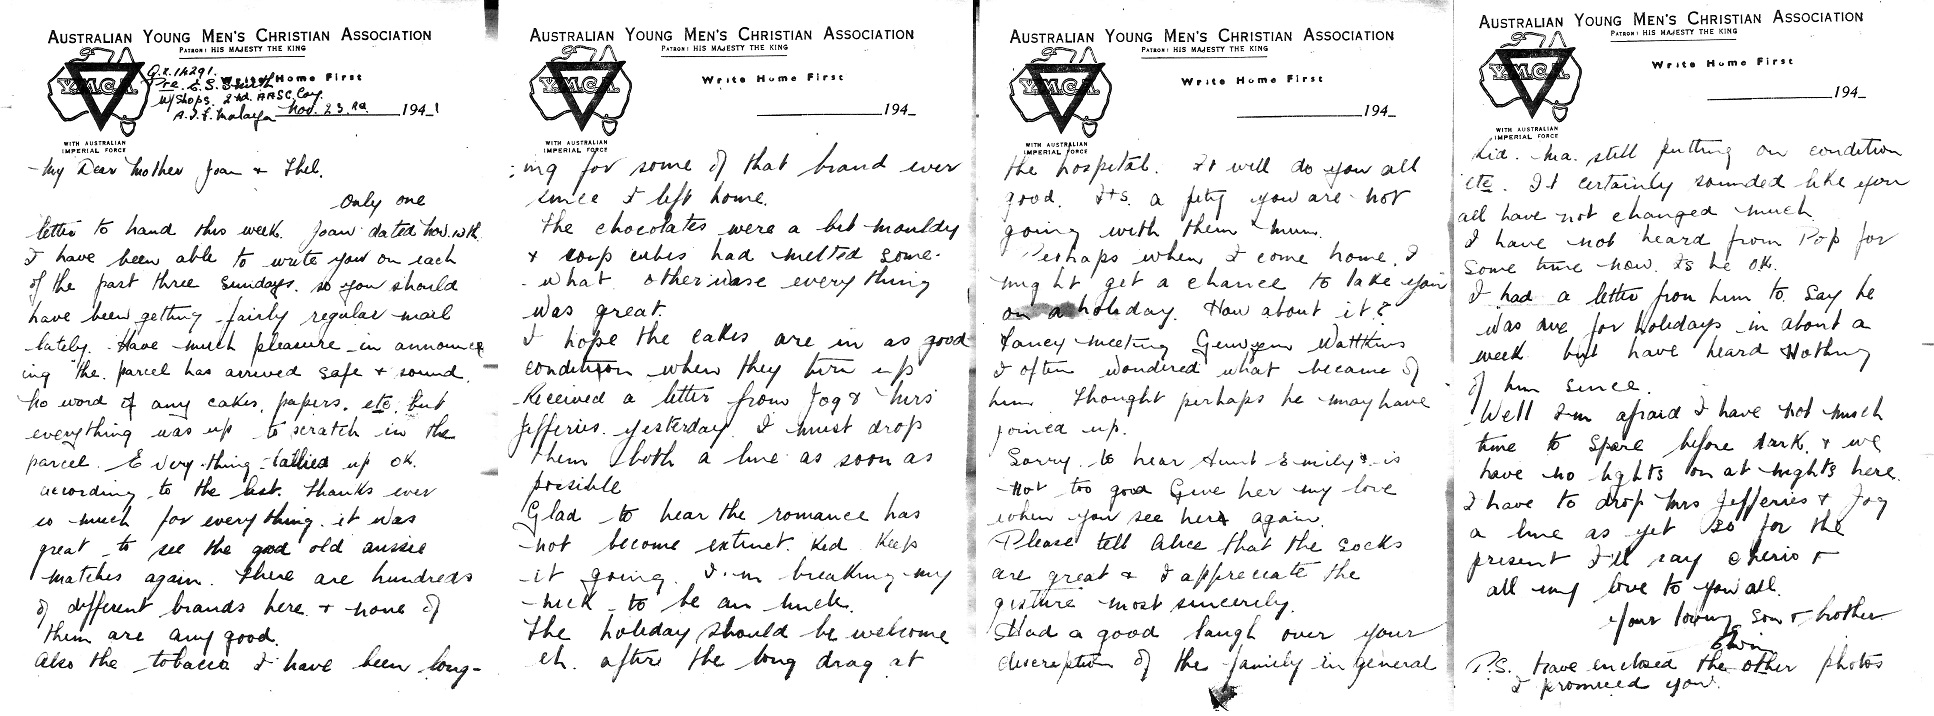 AUSTRALIAN YOUNG MEN'S CHRISTIAN ASSOCIATION
PATRON: HIS MAJESTY THE KING
Y.M.C.A.
Write Home First
Q.X. 14291.
Pte. E. S. Smith
W/Shops. 2nd AASC. Coy.
A.I.F. Malaya Nov. 23 rd 1941
WITH AUSTRALIAN
IMPERIAL FORCE
My Dear Mother Joan & Thel.
Only one
letter to hand this week. Joan dated Nov.
I have been able to write you on each
of the past three Sundays. so you should
have been getting fairly regular mail
lately. Have much pleasure in announc
ing the parcel has arrived safe & sound.
No word of any cakes, papers, etc. but
everything was up to scratch in the
parcel. Every thing tallied up OK.
according to the list. Thanks ever
so much for every thing. it was
great to see the good old aussie
matches again. There are hundreds
of different brands here & none of
them are any good.
Also the tobacco I have been long-
AUSTRALIAN YOUNG MEN'S CHRISTIAN ASSOCIATION
PATRON: HIS MAJESTY THE KING
Y.M.C.A.
Write Home First
194_
WITH AUSTRALIAN
IMPERIAL FORCE
ing for some of that brand ever
since I left home.
The chocolates were a bit mouldy
& soup cubes had melted some-
what. otherwise every thing
was great.
I hope the cakes are in as good
condition when they turn up
Received a letter from Jog & Mrs
Jefferies. yesterday. I must drop
them both a line as soon as
possible
Glad to hear the romance has
not become extinct. Kid. Keep
it going. I'm breaking my
neck to be an unck.
The holiday should be welcome
eh. after the long drag at
AUSTRALIAN YOUNG MEN'S CHRISTIAN ASSOCIATION
PATRON: HIS MAJESTY THE KING
Y.M.C.A.
Write Home First
194_
WITH AUSTRALIAN
IMPERIAL FORCE
the hospital. It will do you all
good. It's a pity you are not
going with them mum.
Perhaps when I come home. I
might get a chance to take you
on a holiday. How about it?
Fancy meeting Watkins
I often wondered what became of
him. Thought perhaps he may have
joined up.
Sorry to hear Aunt Emily is
not too good Give her my love
when you see her again.
Please tell Alice that the socks
are great & I appreciate the
gisture most sincerely.
Had a good laugh over your
discreption of the family in general
AUSTRALIAN YOUNG MEN'S CHRISTIAN ASSOCIATION
PATRON: HIS MAJESTY THE KING
Y.M.C.A.
Write Home First
194_
WITH AUSTRALIAN
IMPERIAL FORCE
Kid. Ma. still putting on condition
etc. It certainly sounded like you
all have not changed much.
I have not heard from Pop for
some time now. Is he OK.
I had a letter fron him to say he
was due for holidays in about a
week but have heard nothing
of him since.
Well I'm afraid I have not much
time to spare before dark. & we
have no lights on at nights here.
I have to drop Mrs Jefferies & Jog
a line as yet so for the
present I'll say cherio &
all my love to you all.
Your loving son & brother
Edwin
P.S. Have enclosed the other photos
I promised you.